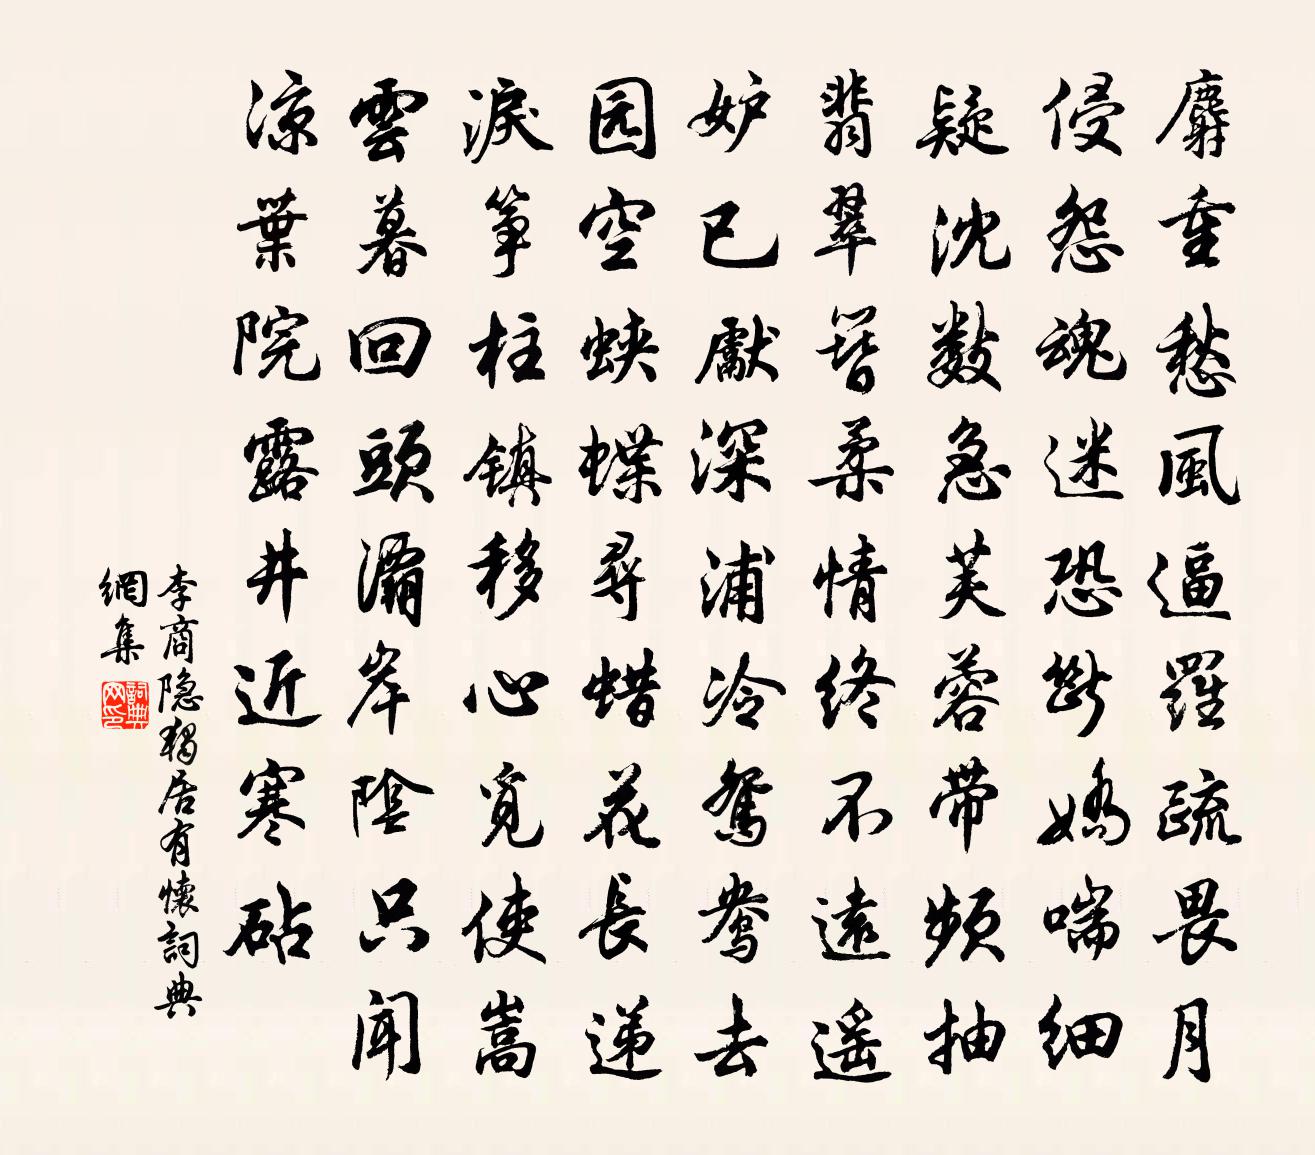 麝重愁風逼羅疏畏月
侵怨魂迷恐斷嬌喘細
疑沈數急芙蓉帶頻抽
翡翠簪柔情終不遠遥
妒已獻深浦冷鴛鴦去
园空蛺蝶尋蜡花長递
淚筝柱镇移心覓使嵩
雲暮回頭灞岸陰只聞
涼葉院露井近寒砧
李商隐獨居有懷詞典
網集
詞典
网印